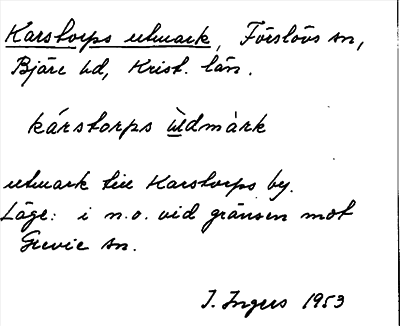 Karstorps utmark, Förslövs sn,
Bjäre hd, Krist. län.
kárstorps ùdmàrk
utmark till Karstorps by.
Läge: i n.o. vid gränsen mot
Grevie sn.
I. Ingers 1953